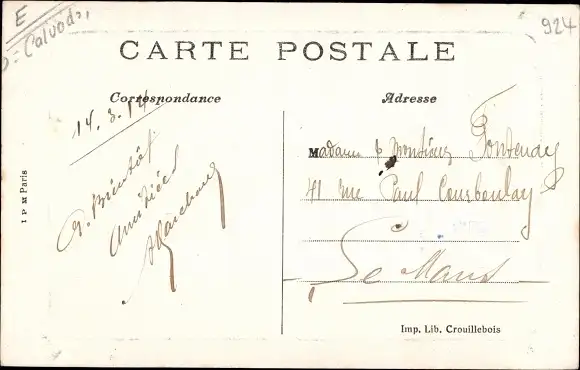 E
D = Calvados,
924
CARTE POSTALE
Correspondance
Adresse
14.8.14
A. Bientôt
Amitiés
Marchand
Madame & Monsieur Fontenay
41 rue Paul Courboulay
Le Mans
I P M Paris
Imp. Lib. Crouillebois